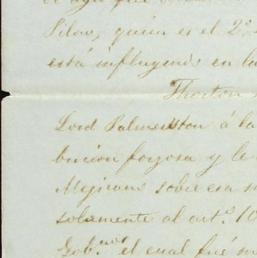 Pilow, quien es el 2º
está influyendo en la
Thorton
Lord Palmerston á la
bucion forzosa y le
Mejicano sobre esa
solamente al artº 10
Gobnos el cual fué